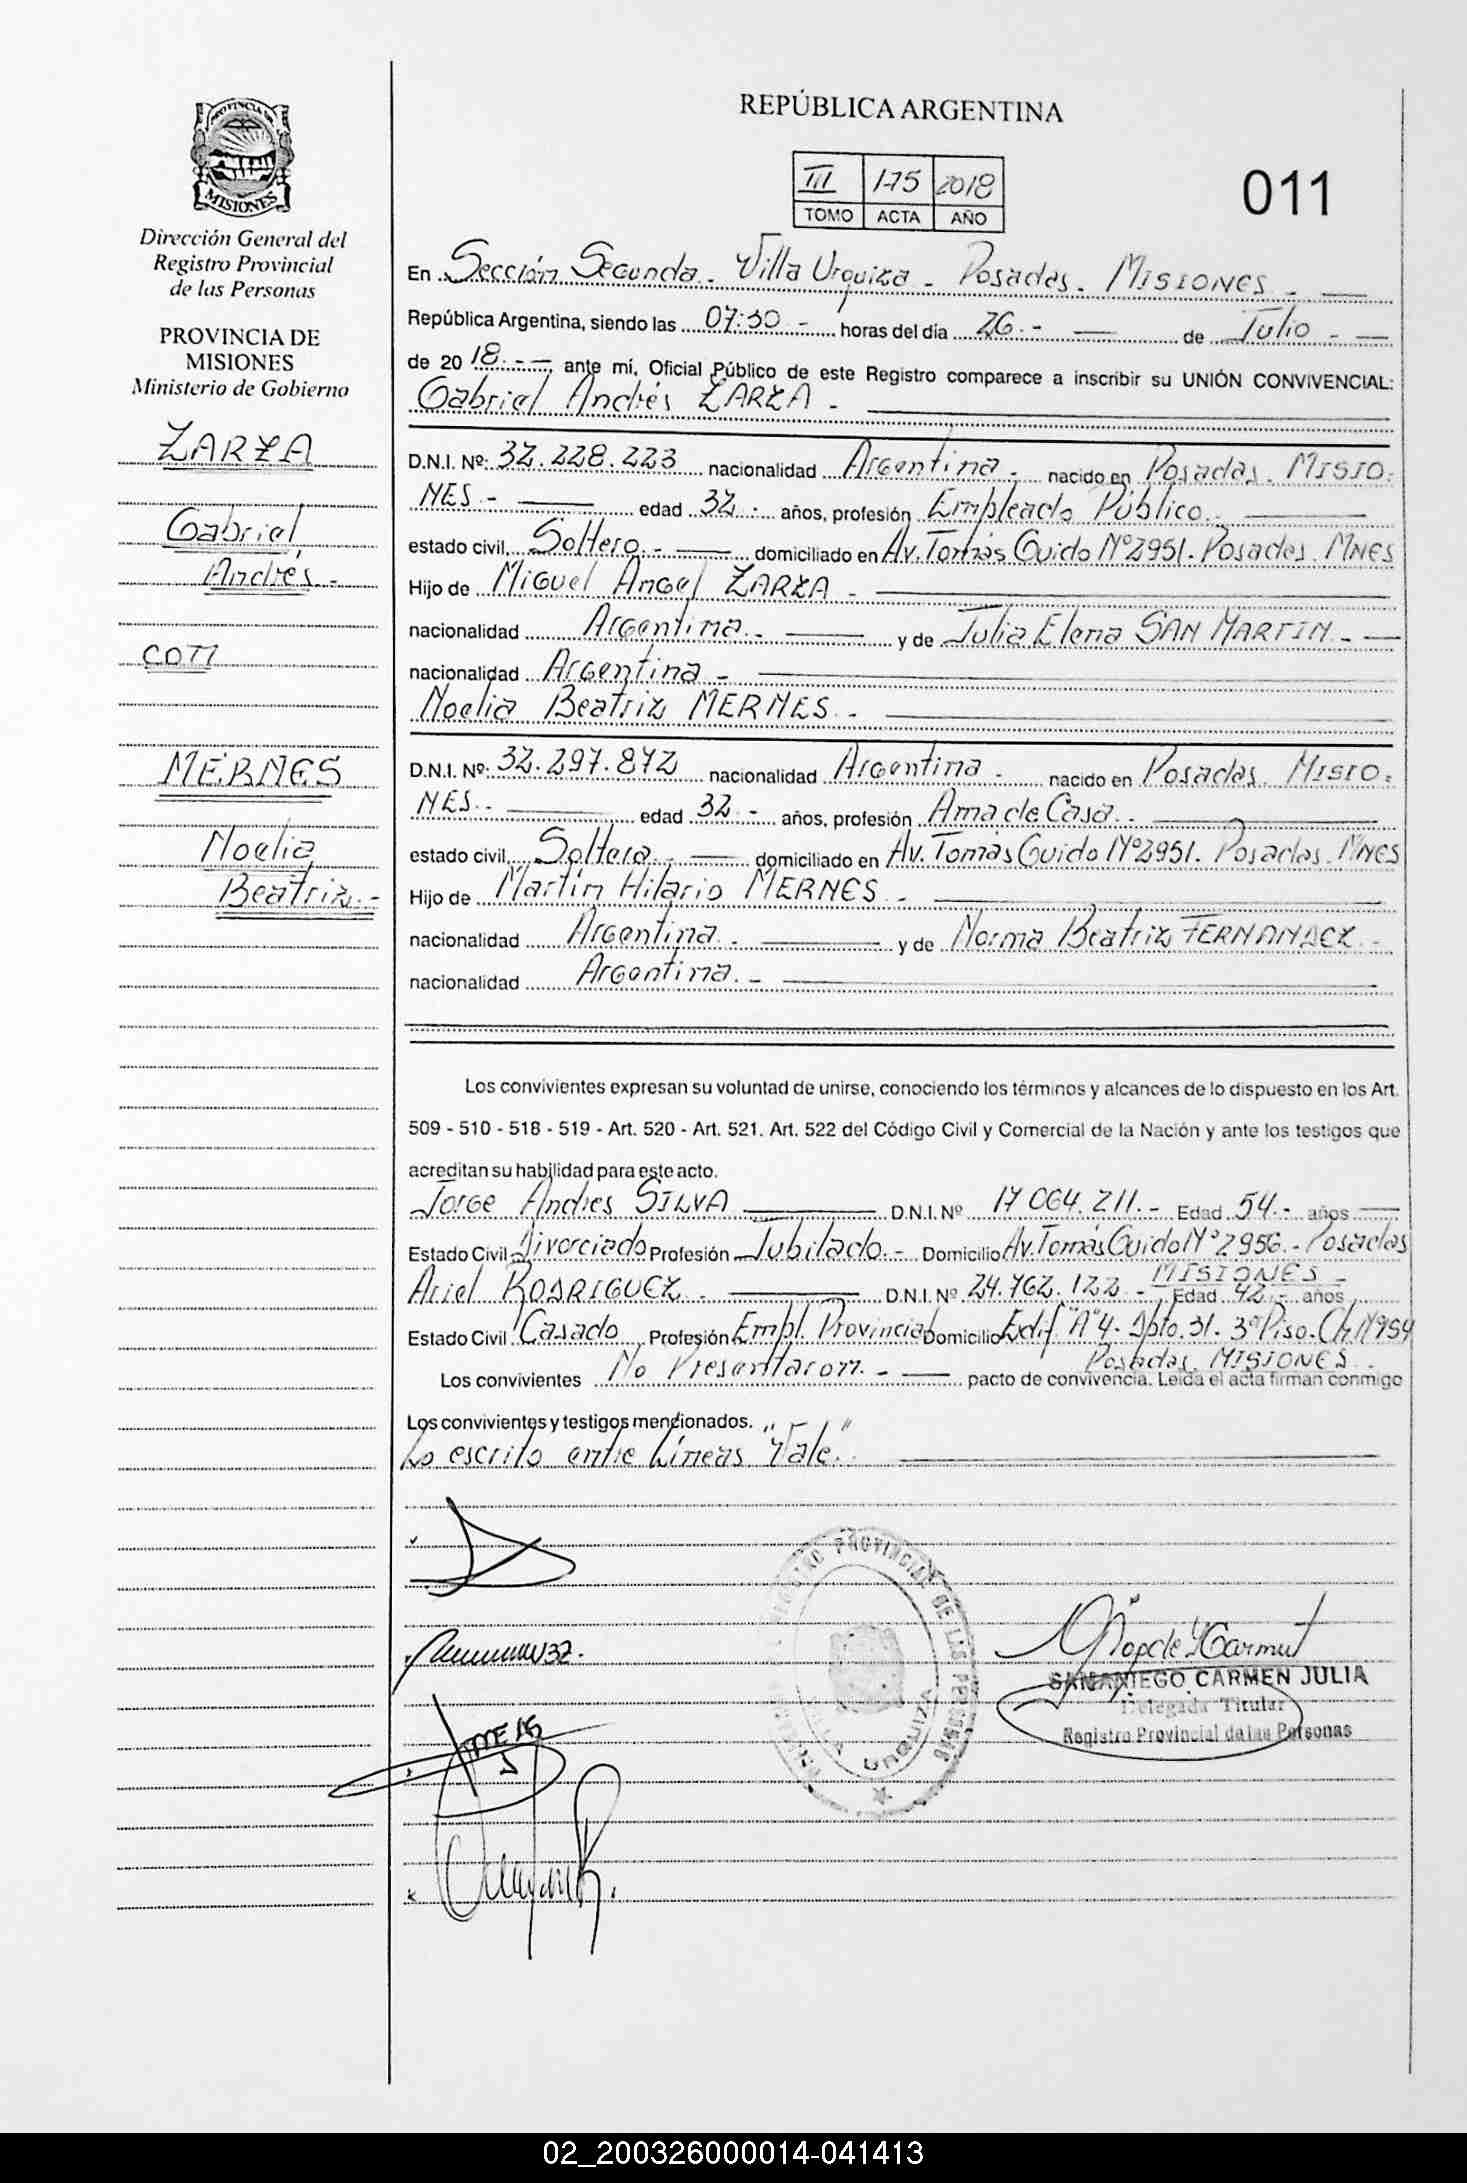 REPÚBLICA ARGENTINA
III 175 2018
TOMO ACTA AÑO
011
PROVINCIA DE
MISIONES
Dirección General del
Registro Provincial
de las Personas
PROVINCIA DE
MISIONES
Ministerio de Gobierno
ZARZA
Gabriel
Andrés.-
CON
MERNES
Noelia
Beatriz.-
En Sección Segunda - Villa Urquiza - Posadas - MISIONES -
República Argentina, siendo las 07:30 - horas del día 26.- de Julio -
de 2018.- ante mí, Oficial Público de este Registro comparece a inscribir su UNIÓN CONVIVENCIAL:
Gabriel Andrés ZARZA -
D.N.I. Nº: 32.228.223 nacionalidad Argentina - nacido en Posadas. MISIO-
NES - edad 32 - años, profesión Empleado Público.-
estado civil, Soltero.- domiciliado en Av. Tomás Guido Nº2951. Posadas. MNES
Hijo de Miguel Angel ZARZA -
nacionalidad Argentina.- y de Julia Elena SAN MARTIN.-
nacionalidad Argentina -
Noelia Beatriz MERNES.-
D.N.I. Nº: 32.297.872 nacionalidad Argentina - nacido en Posadas. MISIO-
NES.- edad 32 - años, profesión Ama de Casa.-
estado civil, Soltera.- domiciliado en Av. Tomás Guido Nº2951. Posadas. MNES
Hijo de Martín Hilario MERNES -
nacionalidad Argentina.- y de Norma Beatriz FERNANDEZ.-
nacionalidad Argentina.-
Los convivientes expresan su voluntad de unirse, conociendo los términos y alcances de lo dispuesto en los Art.
509 - 510 - 518 - 519 - Art. 520 - Art. 521. Art. 522 del Código Civil y Comercial de la Nación y ante los testigos que
acreditan su habilidad para este acto.
Jorge Andres SILVA D.N.I. Nº 17.064.211.- Edad 54.- años
Estado Civil Divorciado Profesión Jubilado.- Domicilio Av. Tomás Guido Nº2956.- Posadas
MISIONES -
Ariel RODRIGUEZ.- D.N.I. Nº 24.762.122 - Edad 42.- años
Estado Civil Casado Profesión Empl. Provincial Domicilio Edif "A"4. Dpto. 31. 3º Piso. Ch. Nº954
Posadas. MISIONES.-
Los convivientes No Presentaron.- pacto de convivencia. Leída el acta firman conmigo
Los convivientes y testigos mencionados.
Lo escrito entre Líneas "Vale".
REGISTRO PROVINCIAL DE LAS PERSONAS
VILLA URQUIZA
SAMANIEGO CARMEN JULIA
Delegada Titular
Registro Provincial de las Personas
02_200326000014-041413